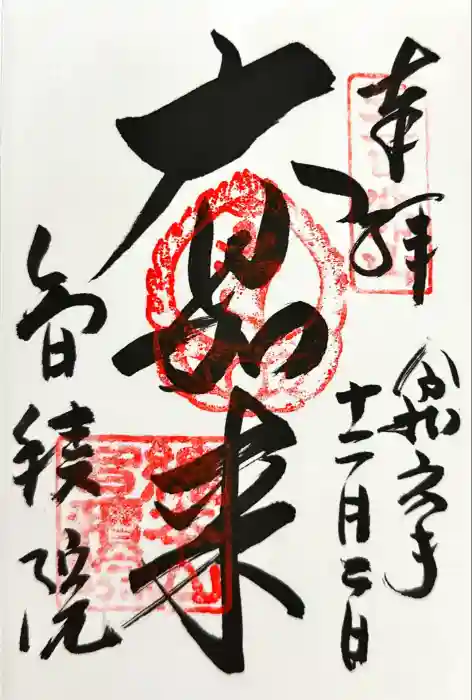 奉拝
令和六年
十二月二日
大日如来
智積院